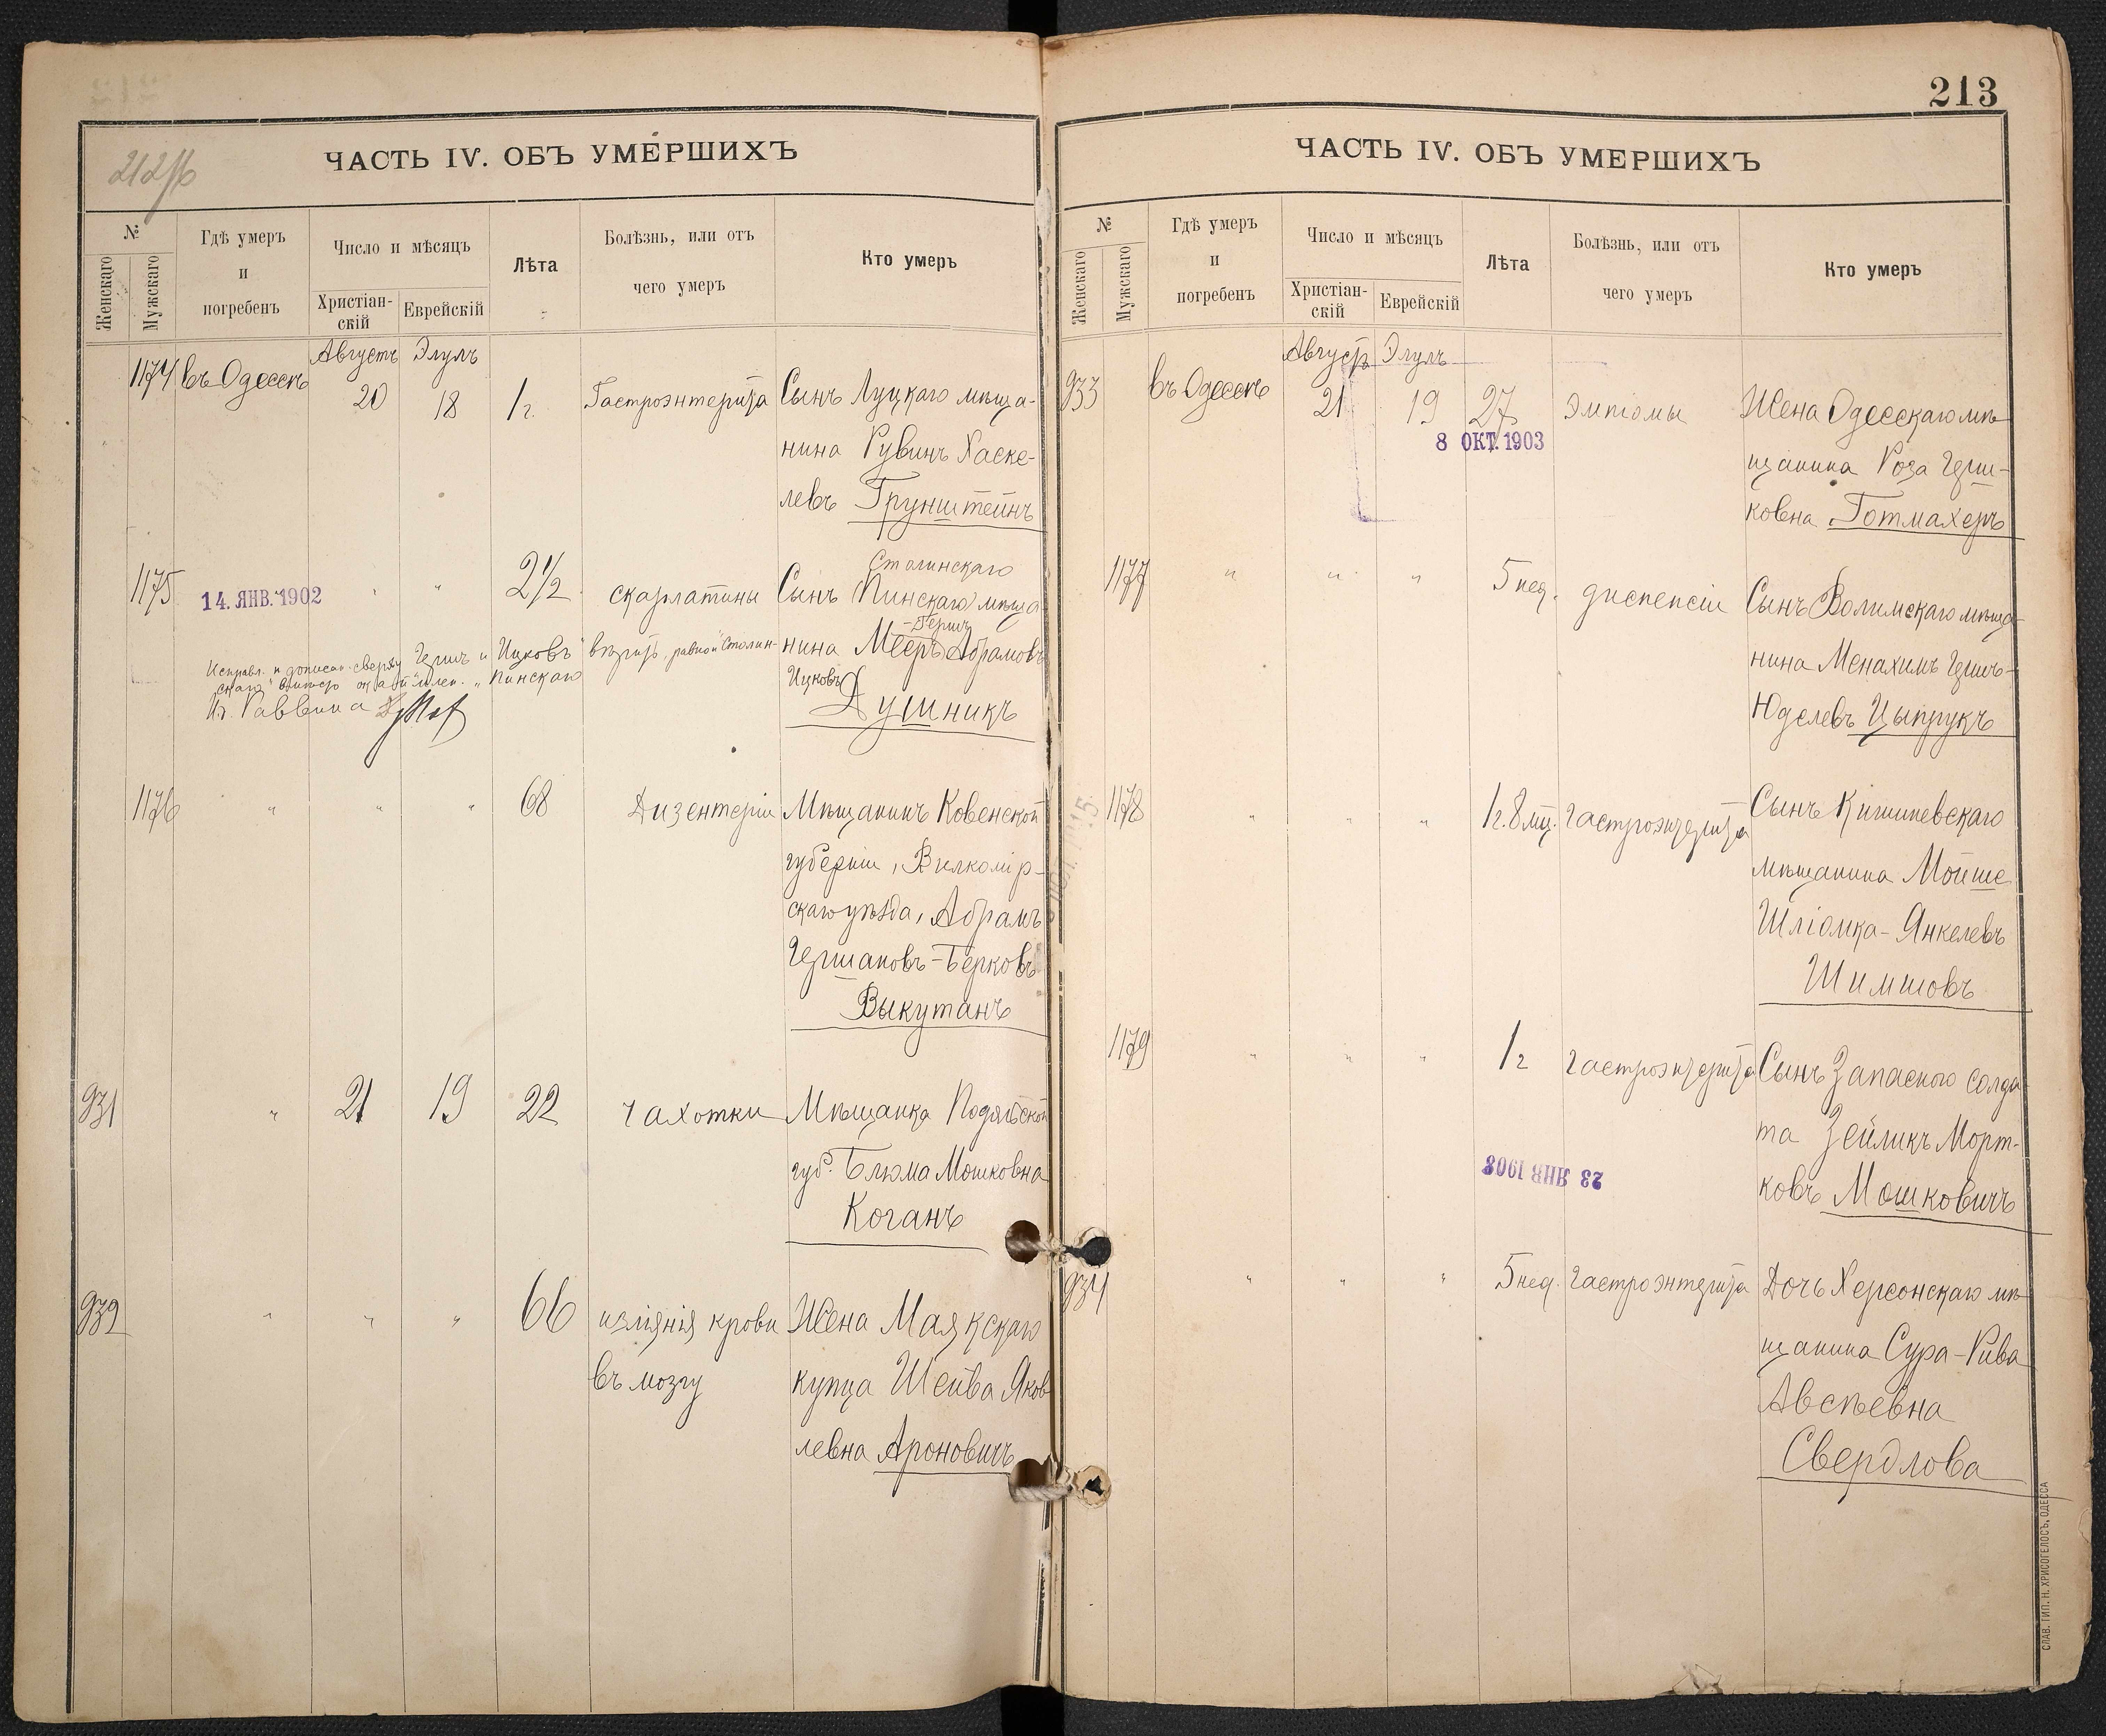 212 об
ЧАСТЬ IV. ОБЪ УМЕРШИХЪ
№
Женскаго
Мужскаго
Гдѣ умеръ
и
погребенъ
Число и мѣсяцъ
Христіан-
скій
Еврейскій
Лѣта
Болѣзнь, или отъ
чего умеръ
Кто умеръ
Августъ Элулъ
1174 въ Одессѣ 20 18 1 г. Гастроэнтерита Сынъ Луцкаго мѣща-
нина Рувинъ Хаске-
левъ Грунштейнъ
Столинскаго
1175 " " 2 1/2 скарлатины Сынъ Пинскаго мѣща-
14. ЯНВ. 1902
-Герш
нина Мееръ Абрамовъ
Ицковъ
Душникъ
Исправл. и дописан. сверху Герш и Ицковъ вѣрить, равно и "Столин-
скаго" вмѣсто "Пинскаго
И. Раввина
1176 " " " 68 Дизентеріи Мѣщанинъ Ковенской
губерніи, Вилкомір-
скаго уѣзда, Абрамъ
Гершановъ-Берковъ
Выкутанъ
931 " 21 19 22 чахотки Мѣщанка Подольской
губ. Блюма Мошковна
Коганъ
932 " " " 66 изліянія крови Жена Маякскаго
въ мозгу купца Шейва Яков
левна Ароновичъ
213
ЧАСТЬ IV. ОБЪ УМЕРШИХЪ
№
Женскаго
Мужскаго
Гдѣ умеръ
и
погребенъ
Число и мѣсяцъ
Христіан-
скій
Еврейскій
Лѣта
Болѣзнь, или отъ
чего умеръ
Кто умеръ
Августъ Элулъ
933 въ Одессѣ 21 19 27 эмпіемы Жена Одесскаго мѣ
8 ОКТ. 1903
щанина Роза Герш-
ковна Готмахеръ
1177 " " " 5 нед. диспепсіи Сынъ Волимскаго мѣща-
нина Менахимъ Гершъ-
Юделевъ Цыпрукъ
1178 " " " 1 г. 8 мц. гастроэнтерита Сынъ Кишиневскаго
мѣщанина Мойше
Шліомка-Янкелевъ
Шимшовъ
1179 " " " 1 г гастроэнтерита Сынъ Запасного солда-
та Зейликъ Морт-
ковъ Мошковичъ
23 ЯНВ 1908
934 " " " 5 нед. гастроэнтерита Дочь Херсонскаго мѣ
щанина Сура-Рива
Авсѣевна
Свердлова
СЛАВ. ТИП. Н. ХРИСОГЕЛОСЪ, ОДЕССА